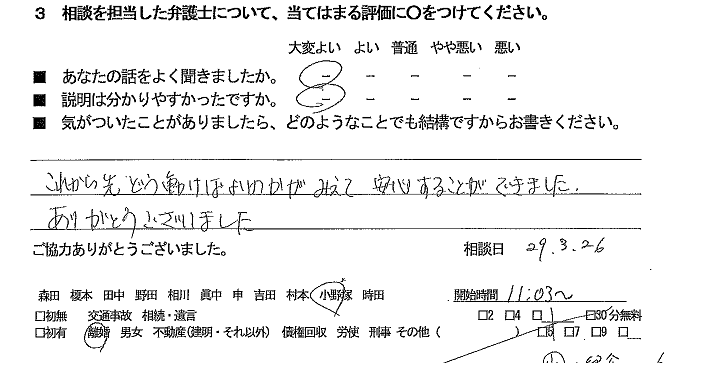 3 相談を担当した弁護士について、当てはまる評価に〇をつけてください。
大変よい よい 普通 やや悪い 悪い
■ あなたの話をよく聞きましたか。 － － － － －
■ 説明は分かりやすかったですか。 － － － － －
■ 気がついたことがありましたら、どのようなことでも結構ですからお書きください。
これから先どう動けばよいのかがみえて 安心することができました.
ありがとうございました
ご協力ありがとうございました。 相談日 29.3.26
森田 榎本 田中 野田 相川 眞中 申 吉田 村本 小野塚 時田 開始時間 11:03～
□初無 交通事故 相続・遺言 □2 □4 □ □30分無料
□初有 離婚 男女 不動産(建明・それ以外) 債権回収 労使 刑事 その他 ( ) □5 □7 □9 □